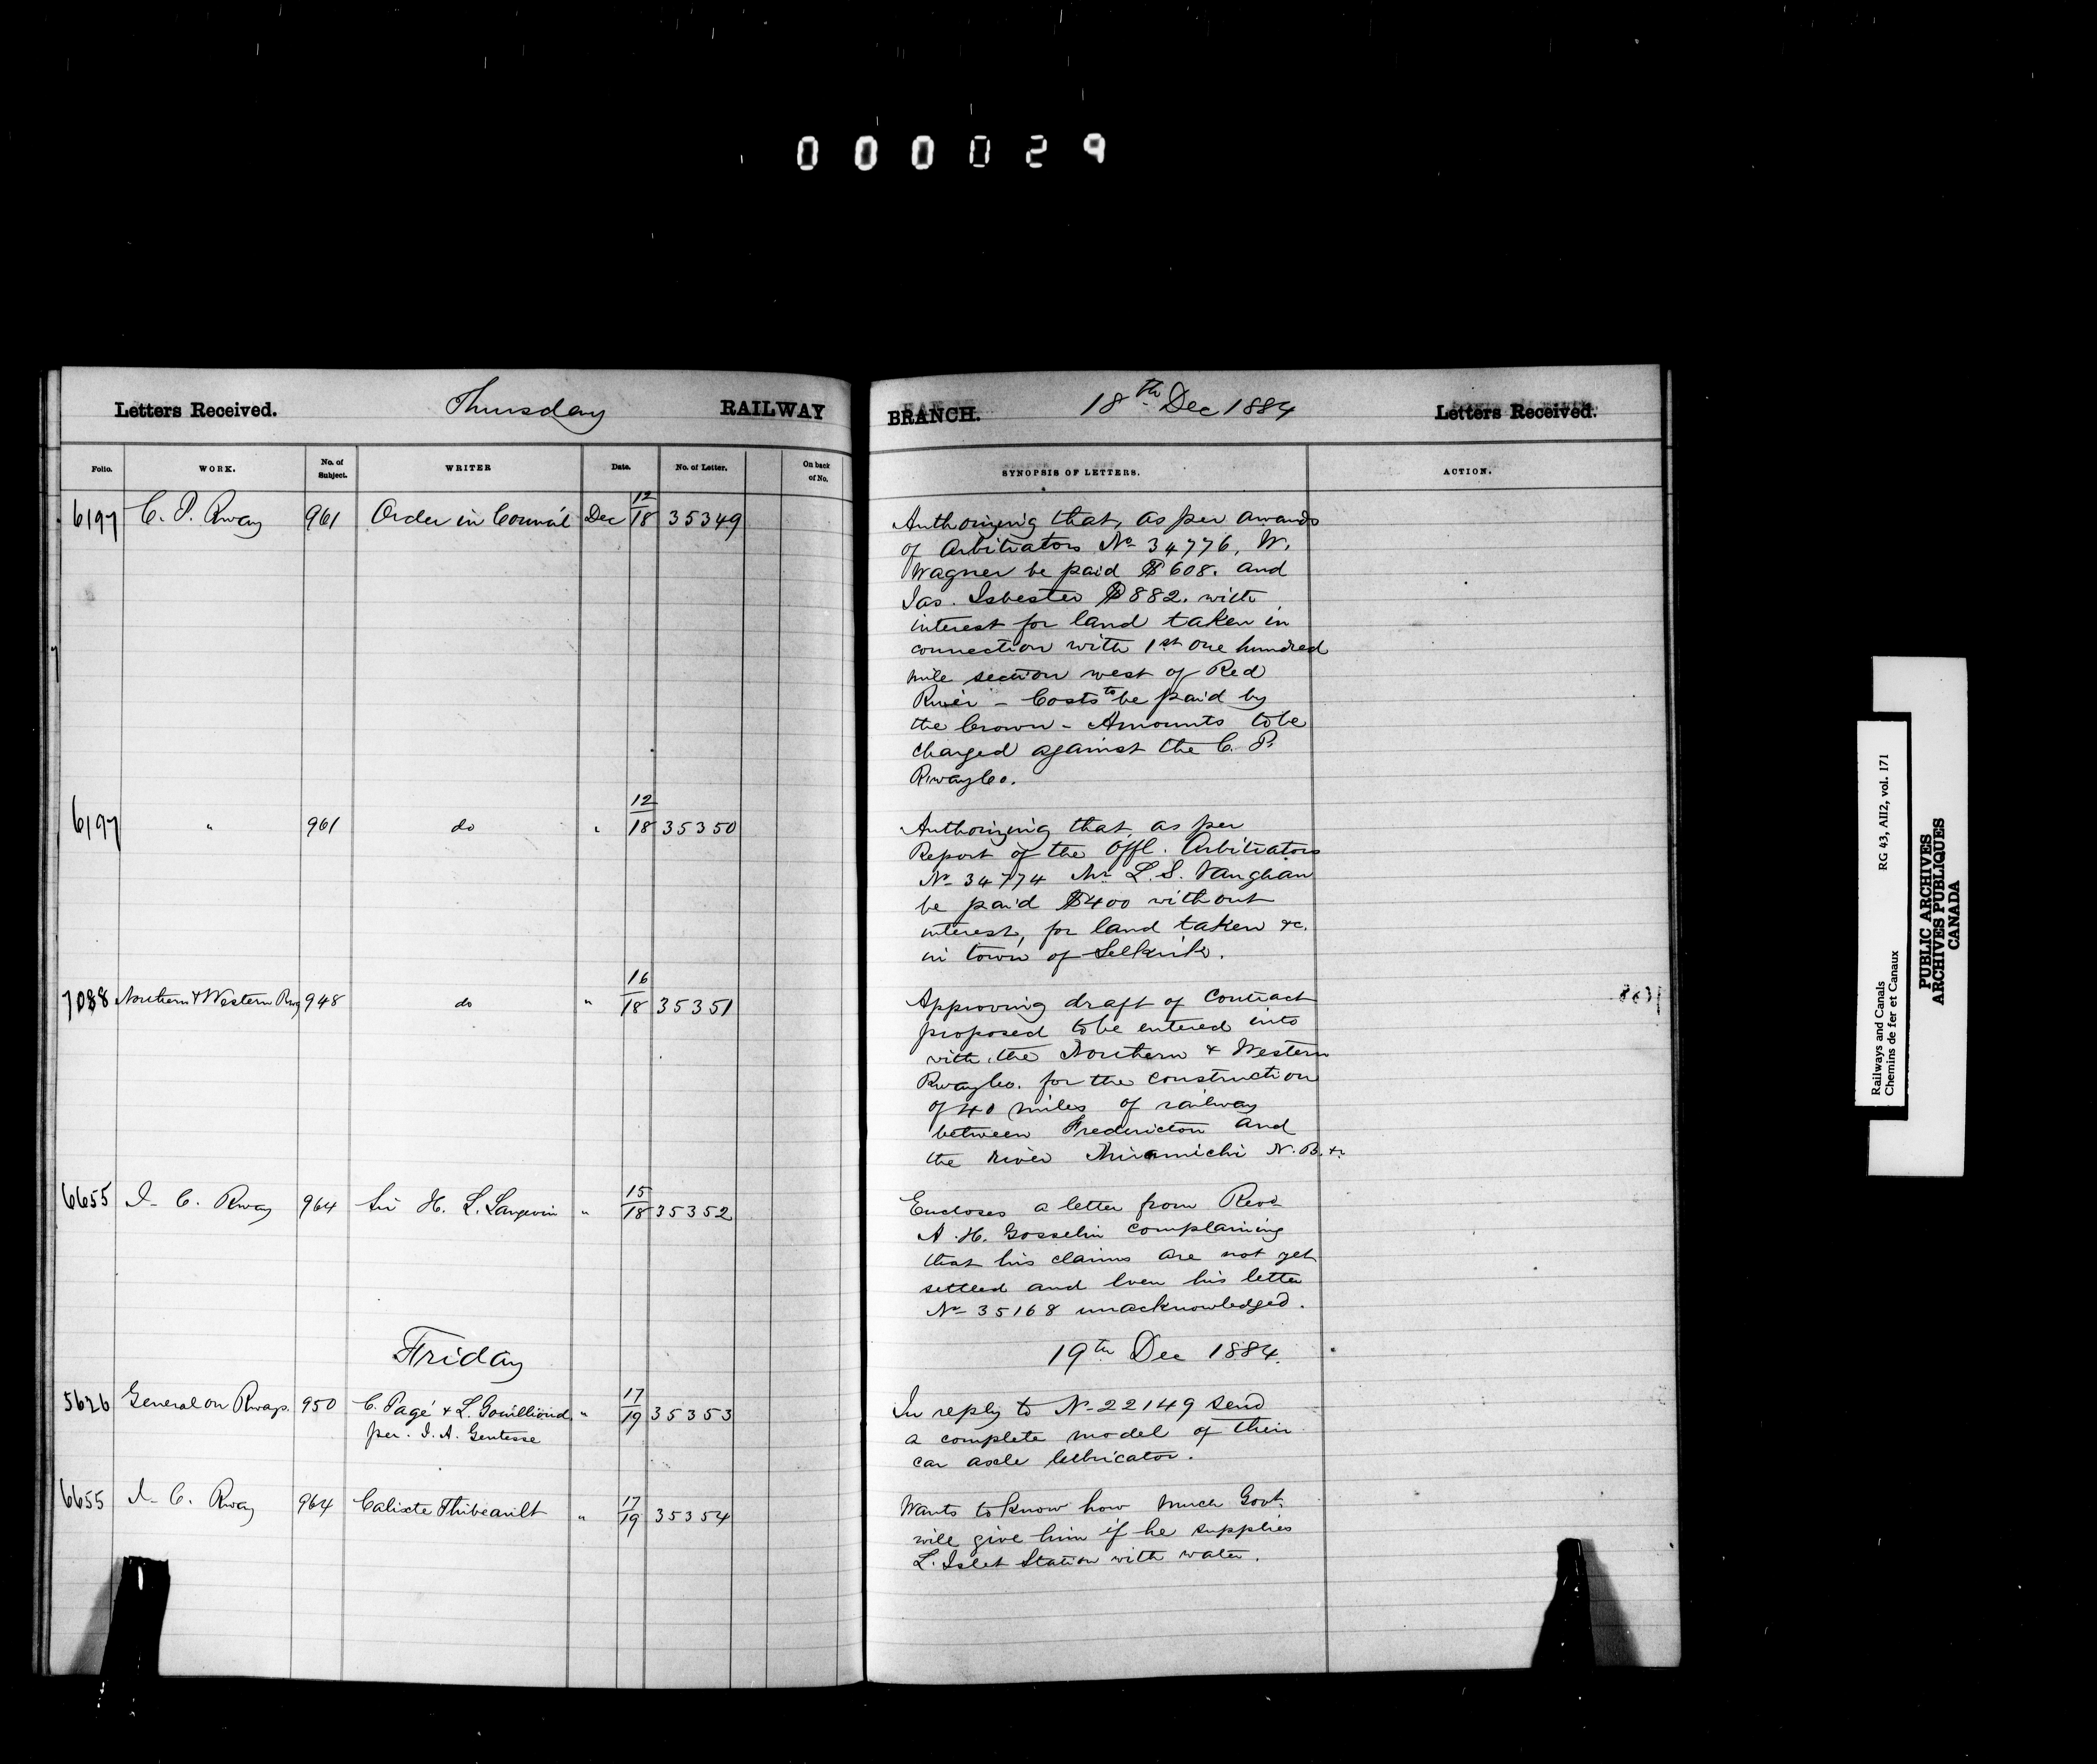 000029
Letters Received. Thursday RAILWAY BRANCH. 18th Dec 1884 Letters Received.
Folio. WORK. No. of Subject. WRITER Date. No. of Letter. On back of No. SYNOPSIS OF LETTERS. ACTION.
6197 C. P. Rway 961 Order in Council Dec 12/18 35349
Authorizing that, as per awards
of Arbitrators No 34776, W.
Wagner be paid $608. and
Jas. Isbester $882. with
interest for land taken in
connection with 1st one hundred
mile section west of Red
River - Costs to be paid by
the Crown - Amounts to be
charged against the C. P.
Rway Co.
6197 " 961 do " 12/18 35350
Authorizing that, as per
Report of the Offl. Arbitrators
No 34774 Mr L. S. Vaughan
be paid $400 without
interest, for land taken &c.
in town of Selkirk.
7088 Northern & Western Rwy 948 do " 16/18 35351
Approving draft of contract
proposed to be entered into
with the Northern & Western
Rway Co. for the construction
of 40 miles of railway
between Fredericton and
the River Miramichi N. B. &c
6655 I. C. Rway 964 Sir H. L. Langevin " 15/18 35352
Encloses a letter from Revd
A. H. Gosselin complaining
that his claims are not yet
settled and even his letter
No 35168 unacknowledged.
Friday 19th Dec 1884.
5626 General on Rways. 950 C. Pagé & L. Gouilliond " 17/19 35353
per. J. A. Gentesse
In reply to No 22149 send
a complete model of their
car axle lubricator.
6655 I. C. Rway 964 Calixte Thibeault " 17/19 35354
Wants to know how much Govt.
will give him if he supplies
L. Islet Station with water.
Railways and Canals RG 43, AII2, vol. 171
Chemins de fer et Canaux
PUBLIC ARCHIVES
ARCHIVES PUBLIQUES
CANADA